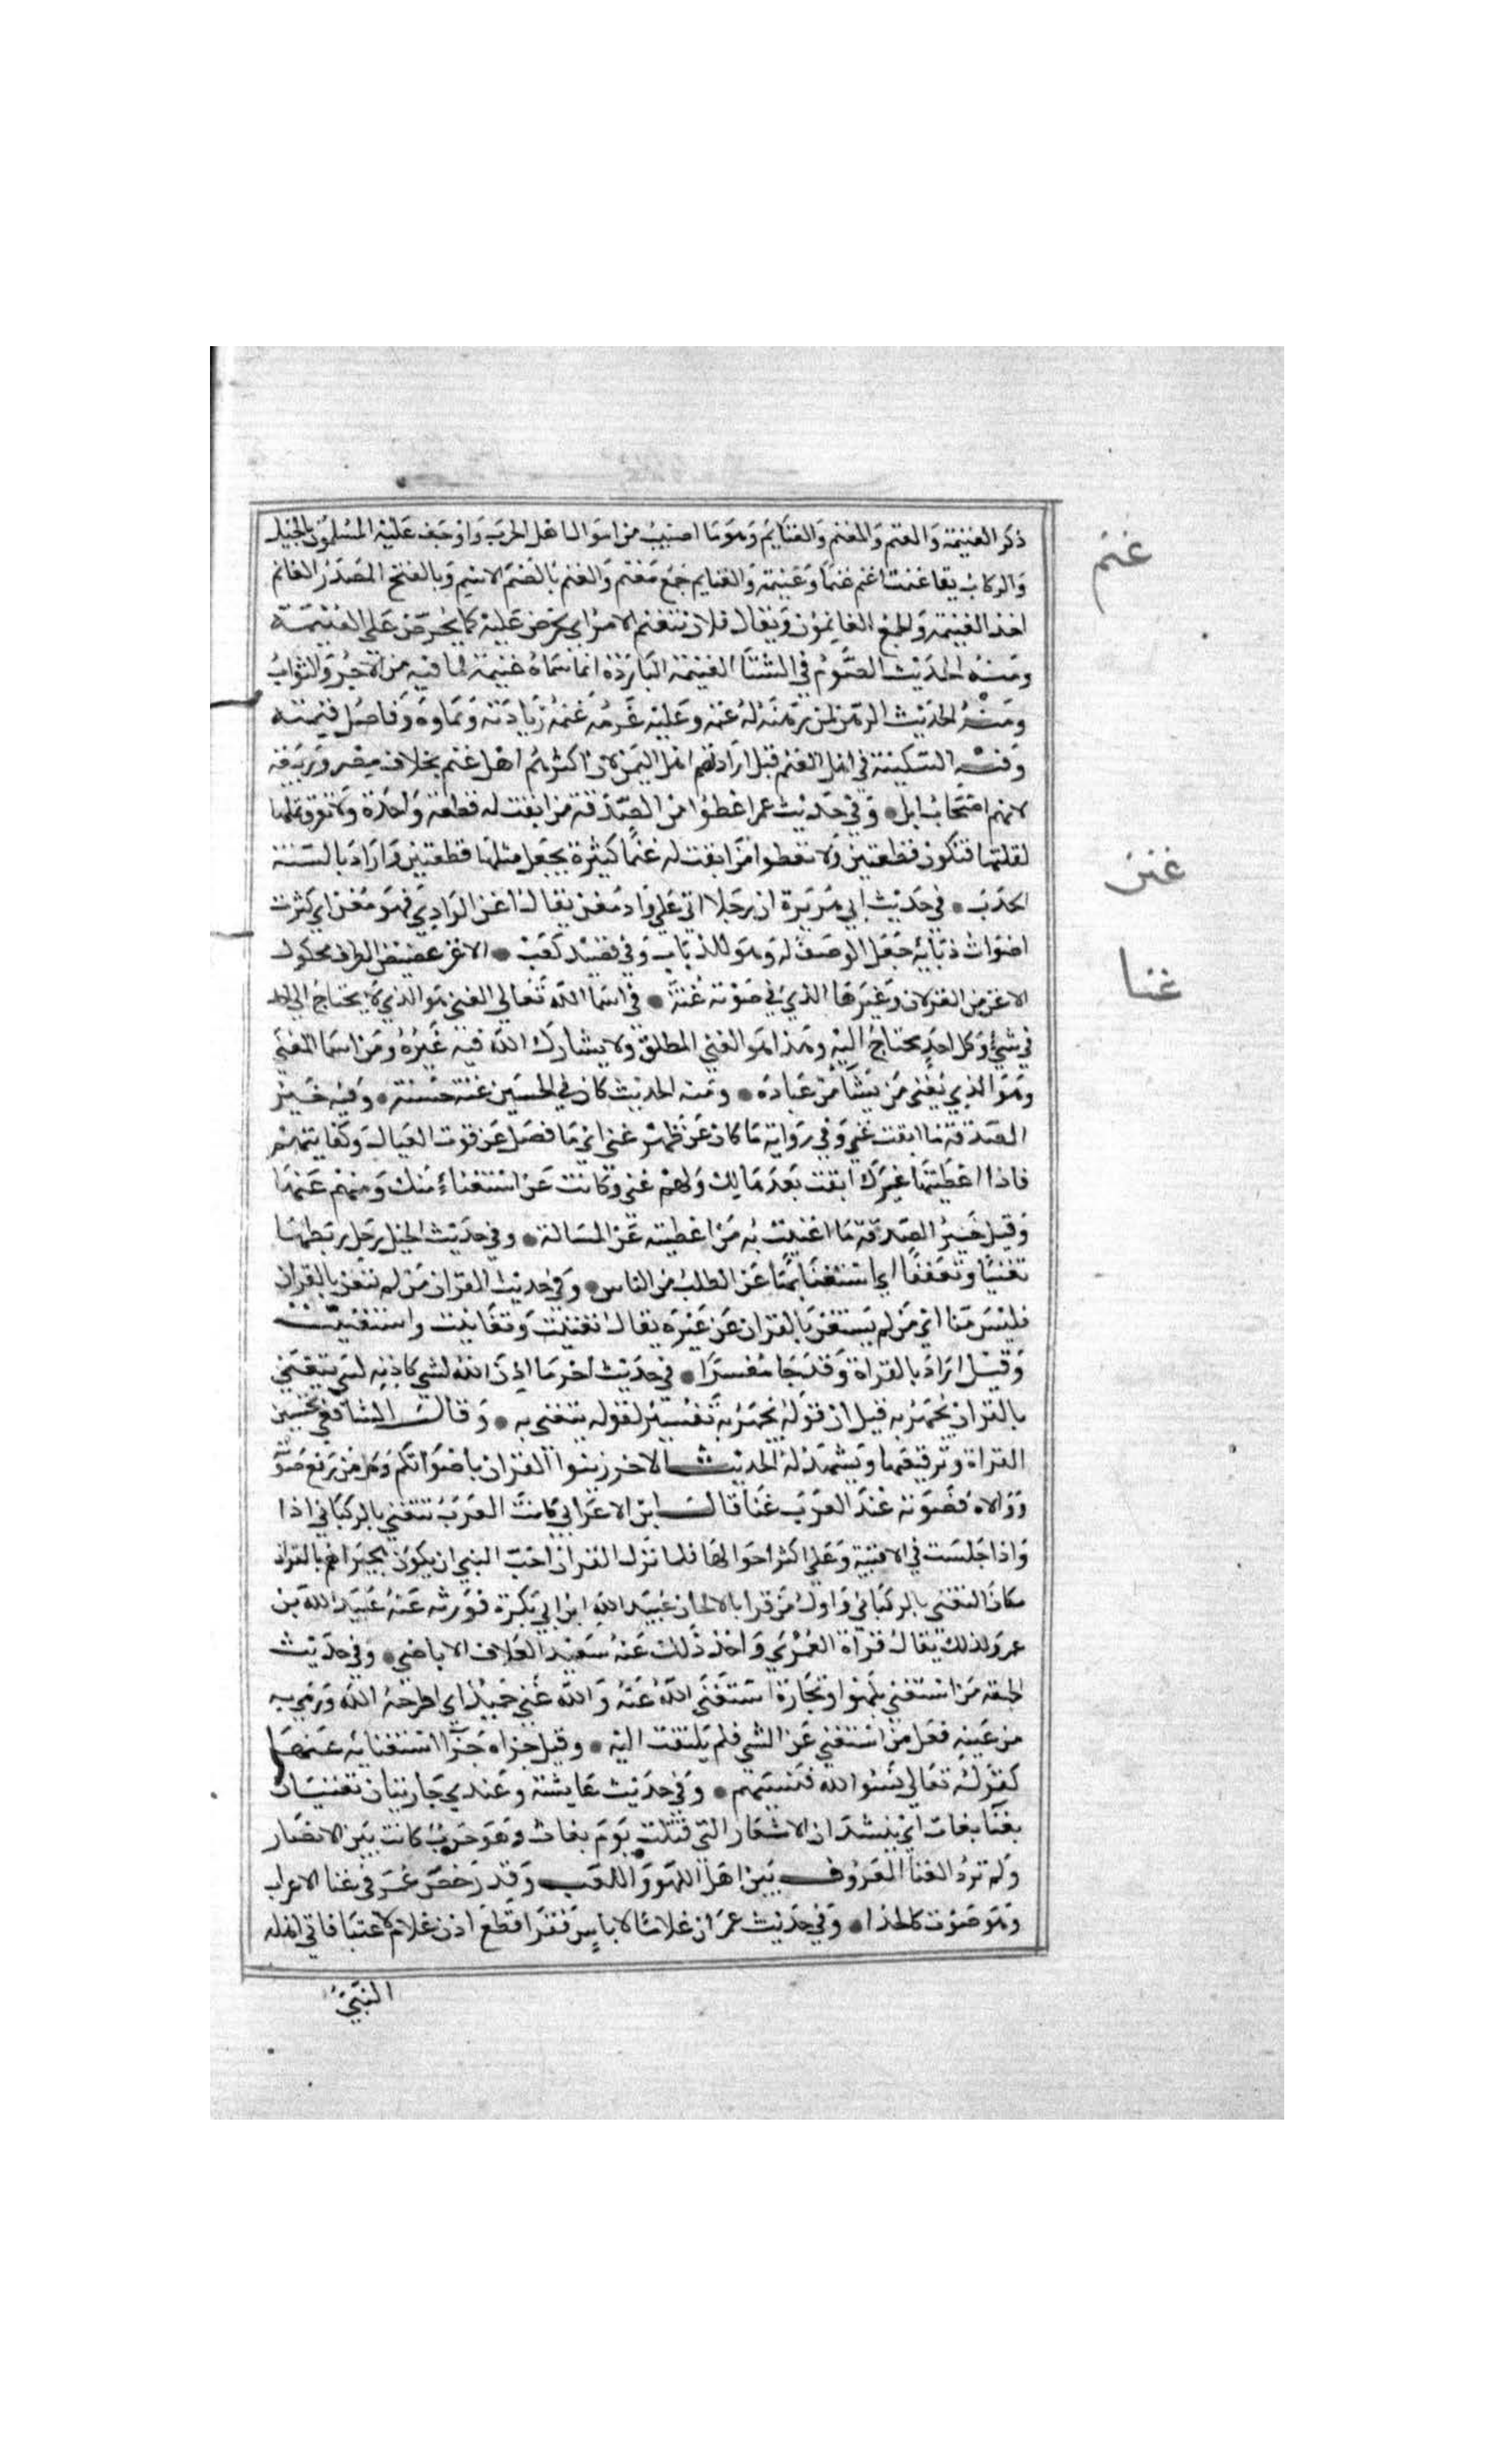 ذكر الغنيمة والغنم والمغنم والغنايم وهو ما اصيب من اموال اهل الحرب واوجف عليه المسلمون بالخيل
غنم
والركاب يقا غنمت اغنم غنما وغنيمة والغنايم جمع مغنم والغنم بالضم الاسم وبالفتح المصدر الغانم
اخذ الغنيمة والجمع الغانمون ويقال فلان يتغنم الامر اي يحرض عليه كما يحرض علي الغنيمة
ومنه الحديث الصوم في الشتا الغنيمة الباردة انما سماه غنيمة لما فيه من الاجر والثواب
ومنه الحديث الرهن لمن رهنه له غنمه وعليه غرمه غنمه زيادته ونماوه وفاضل قيمته
وفيه السكينة في اهل الغنم قيل اراد بهم اهل اليمن لان اكثرهم اهل غنم بخلاف مضر وربيعة
لانهم اصحاب ابل وفي حديث عمر اعطوا من الصدقة من ابقت له قطعة واحدة ولا تفرق مثلها
لقلتها فتكون قطعتين ولا تعطوا من ابقت له غنما كثيرة يجعل مثلها قطعتين واراد بالسنة
الجدب في حديث ابي هريرة ان رجلا اتي علي واد مغن يقال اغن الوادي فهو مغن اي كثرت
غنن
اصوات ذبابه جعل الوصف له وهو للذباب وفي قصيد كعب الا اغن غضيض الطرف مكحول
الاغن من الغزلان وغيرها الذي في صوته غنة في اسما الله تعالي الغني هو الذي لا يحتاج الي احد
غنا
في شي وكل احد يحتاج اليه وهذا هو الغني المطلق ولا يشارك الله فيه غيره ومن اسما المغني
وهو الذي يغني من يشا من عباده ومنه الحديث كان في الحسين غنة حسنة وفيه خير
الصدقة ما ابقت غني وفي رواية ما كان عن ظهر غني اي ما فضل عن قوت العيال وكفايتهم
فاذا اعطيتها غيرك ابقت بعدها لك ولهم غني وكانت عن استغناء منك ومنهم عنها
وقيل خير الصدقة ما اغنيت به من اعطيته عن المسالة وفي حديث الخيل رجل ربطها
تغنيا وتعففا اي استغنا بها عن الطلب من الناس وفي حديث القران من لم يتغن بالقران
فليس منا اي من لم يستغن بالقران عن غيره يقال تغنيت وتغانيت واستغنيت
وقيل اراد بالقراة وقد جا مفسرا في حديث اخر ما اذن الله لشي كاذنه لنبي يتغني
بالقران يجهر به قيل ان قوله يجهر به تفسير لقوله يتغني به وقال الشافعي تحسين
القراة وترقيقها ويشهد له الحديث الاخر زينوا القران باصواتكم وكل من رفع صوته
ووالاه فصوته عند العرب غنا قال ابن الاعرابي كانت العرب تتغني بالركباني اذا
واذا جلست في الافنية وعلي اكثر احوالها فلما نزل القران احب النبي ان يكون هجيراهم بالقران
مكان التغني بالركباني واول من قرا بالالحان عبيد الله ابن ابي بكرة فورثه عنه عبيد الله بن
عمر ولذلك يقال قراة العمري واخذ ذلك عنه سعيد العلاف الاباضي وفي حديث
الجمعة من استغني بلهو او تجارة استغني الله عنه والله غني حميد اي اطرحه الله ورمي به
من عينه فعل من استغني عن الشي فلم يلتفت اليه وقيل جزاه جزا استغنايه عنها
كقوله تعالي نسوا الله فنسيهم وفي حديث عايشة وعندي جاريتان تغنيان
بغنا بغاث اي ينشدان الاشعار التي قيلت يوم بغاث وهو حرب كانت بين الانصار
ولم ترد الغنا المعروف بين اهل اللهو واللعب وقد رخص عمر في غنا الاعراب
وهو صوت كالحدا وفي حديث عمر ان غلاما لاناس فقرا قطع اذن غلام لاغنيا فاتي اهله
النبي